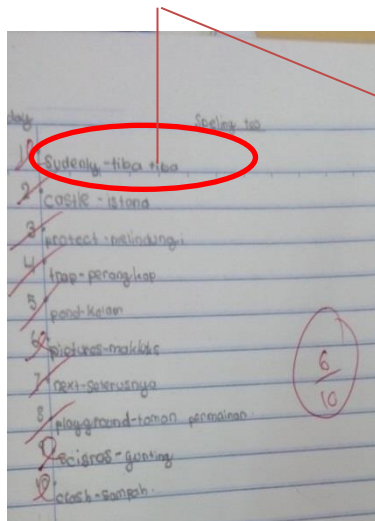 day Speling tes
1 Sydenly - tiba tiba
2 castle - istana
3 protect - melindungi
4 trap - perangkap
5 pond - kolam
6 pictures - makluks
7 next - seterusnya
8 playground - taman permainan
9 scisros - gunting
10 crash - sampah
6/10